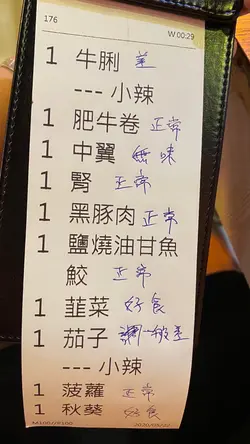 176 W.00:29
1 牛脷 差
--- 小辣
1 肥牛卷 正常
1 中翼 無味
1 腎 正常
1 黑豚肉 正常
1 鹽燒油甘魚
鮫 正常
1 韮菜 好食
1 茄子 一般
--- 小辣
1 菠蘿 正常
1 秋葵 好食